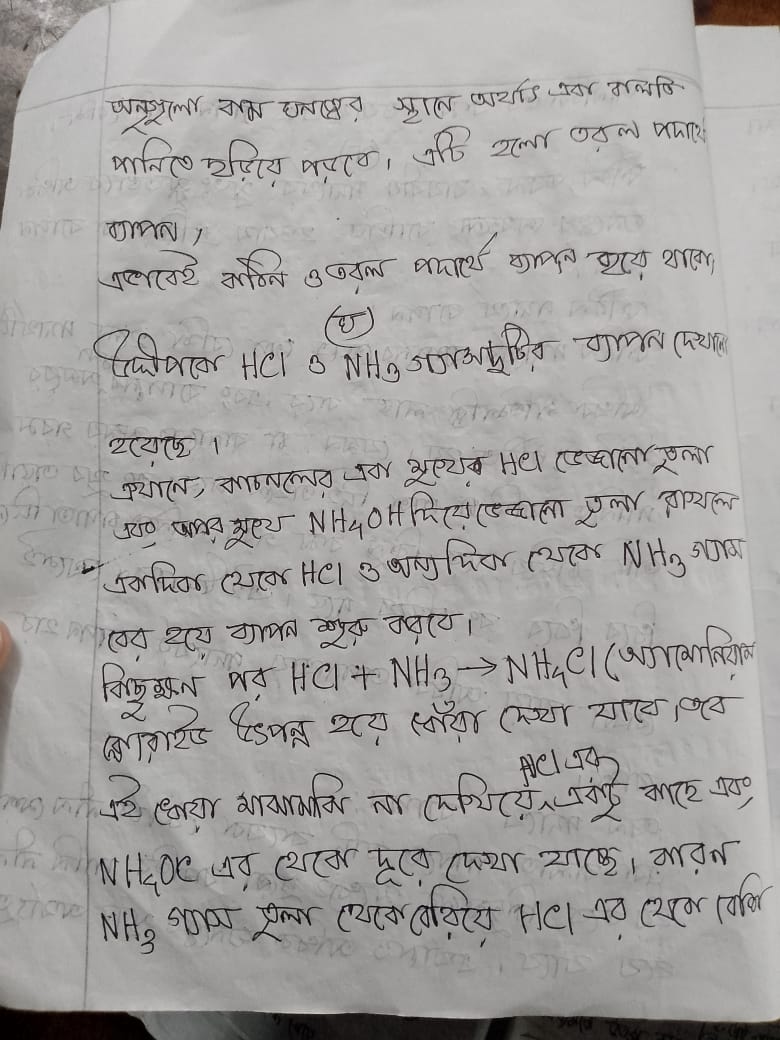 অনুগুলো কম ঘনত্বের স্থানে অর্থাৎ এক বালতি
পানিতে ছড়িয়ে পরবে। এটি হলো তরল পদার্থে
ব্যাপন,
এভাবেই কঠিন ও তরল পদার্থে ব্যাপন হয়ে থাকে,
(ঘ)
উদ্দীপকে HCl ও NH3 গ্যাসদুটির ব্যাপন দেখানো
হয়েছে।
এখানে, কাচনলের এক মুখের HCl ভেজানো তুলা
এবং অপর মুখে NH4OH দিয়ে ভেজানো তুলা রাখলে
একদিক থেকে HCl ও অন্যদিক থেকে NH3 গ্যাস
বের হয়ে ব্যাপন শুরু করবে।
কিছুক্ষন পর HCl + NH3 → NH4Cl (অ্যামোনিয়াম
ক্লোরাইড উৎপন্ন হয়ে ধোঁয়া দেখা যাবে। তবে
এই ধোয়া মাঝামাঝি না দেখিয়ে HCl এর একটু কাছে এবং
NH4OC এর থেকে দূরে দেখা যাচ্ছে। কারন
NH3 গ্যাস তুলা থেকে বেরিয়ে HCl এর থেকে বেশি